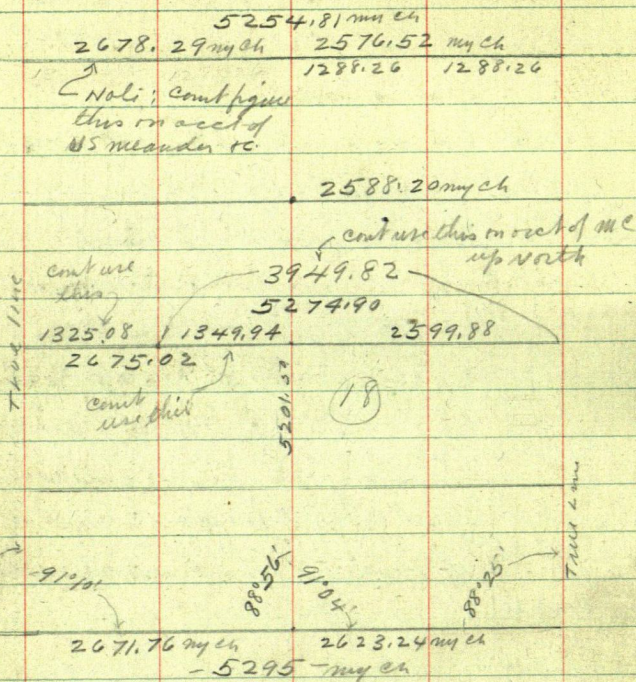 5254.81 my ch
2678.29 my ch 2576.52 my ch
1288.26 1288.26
Note: cant figure
this on acct of
US meander &c.
2588.20 my ch
cant use this on acct of MC
up North
cant use
this
3949.82
5274.90
1325.08 1349.94 2599.88
2675.02
cant
use this
True line
18
True Line
91°10'
88°56'
91°04'
88°25'
2671.76 my ch 2623.24 my ch
-5295- my ch